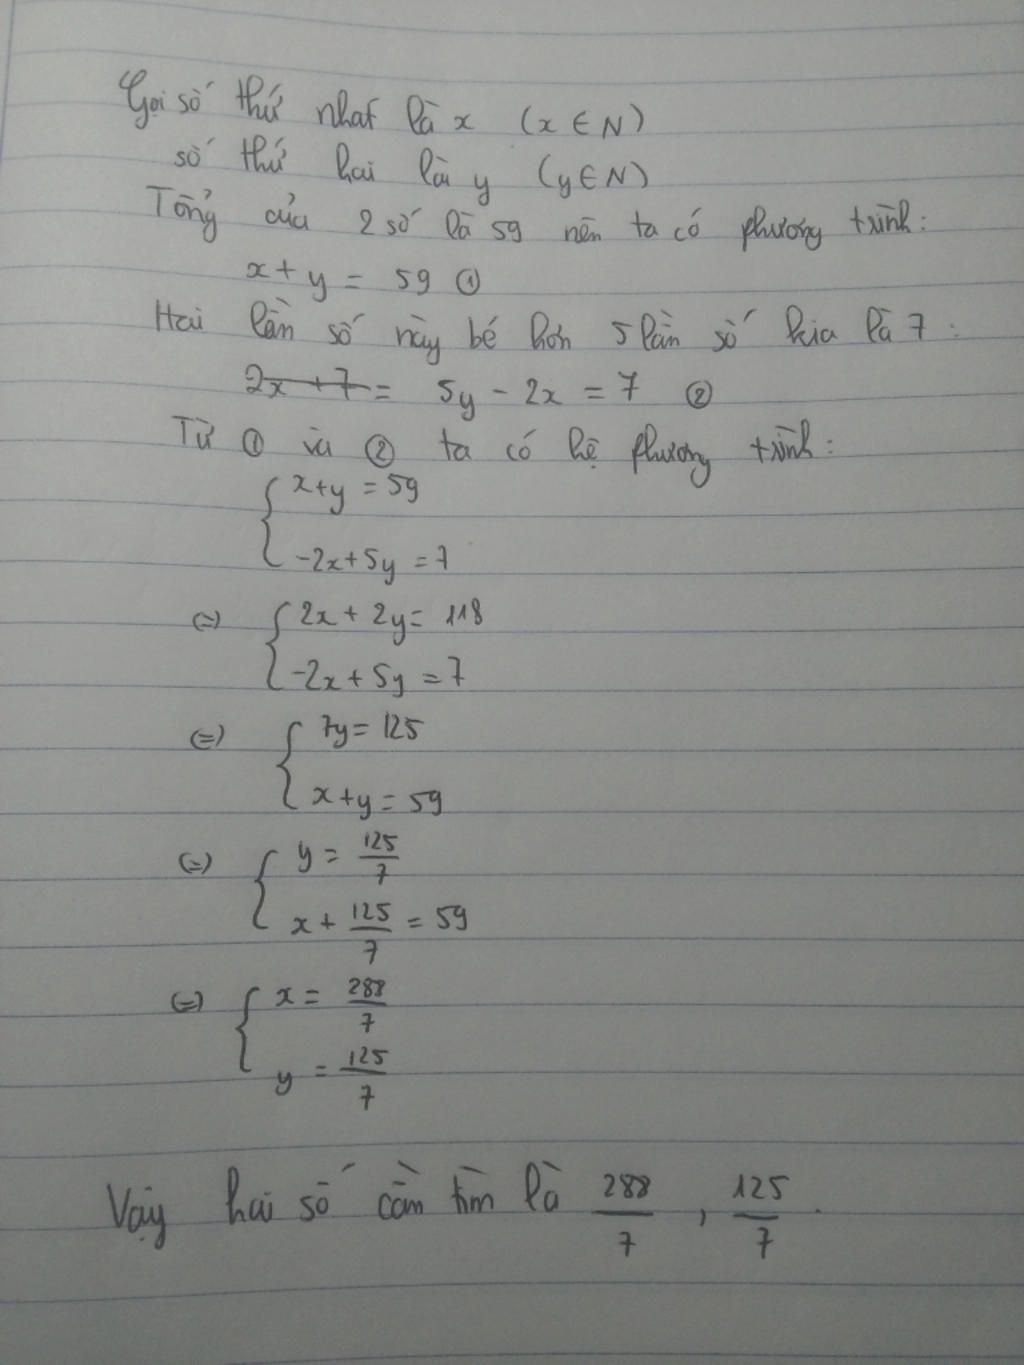 Gọi số thứ nhat là x (x ∈ N)
số thứ hai là y (y ∈ N)
Tổng của 2 số là 59 nên ta có phương trình:
x + y = 59 ①
Hai lần số này bé hơn 5 lần số kia là 7:
2x + 7 = 5y - 2x = 7 ②
Từ ① và ② ta có hệ phương trình:
{ x+y = 59
-2x+5y = 7
(=) { 2x + 2y = 118
-2x + 5y = 7
(=) { 7y = 125
x+y = 59
(=) { y = 125/7
x + 125/7 = 59
(=) { x = 288/7
y = 125/7
Vậy hai số cần tìm là 288/7, 125/7.